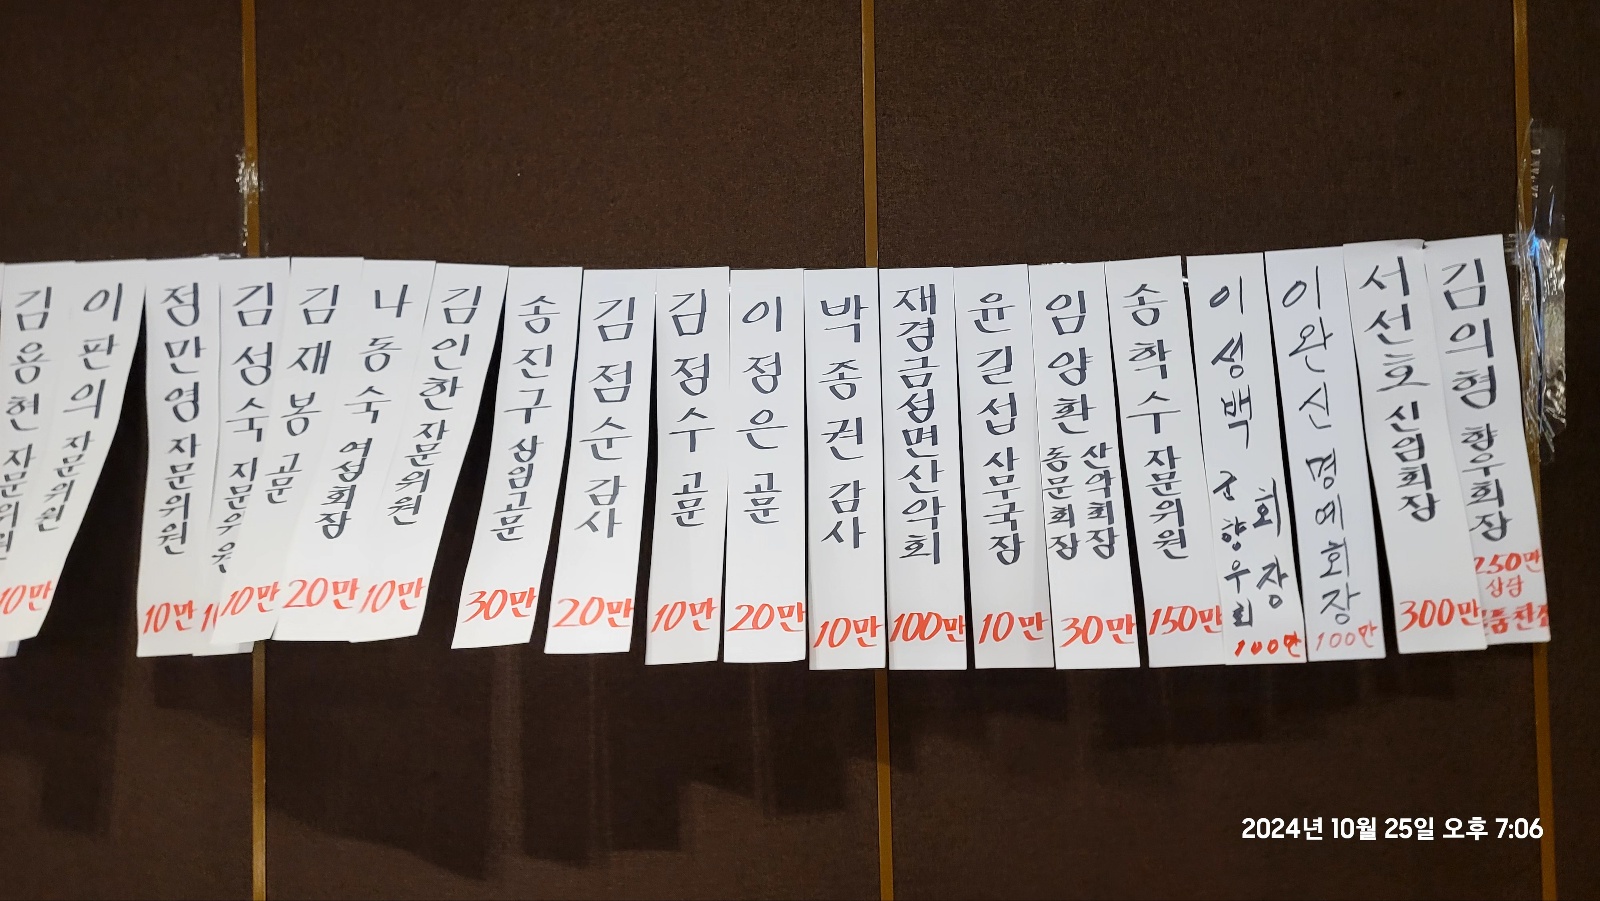 김용현 자문위원 10만
이판의 자문위원
정만영 자문위원 10만
김성숙 자문위원
김재봉 고문 10만
나동숙 여성회장 20만
김인한 자문위원 10만
송진구 상임고문 30만
김점순 감사 20만
김정수 고문 10만
이정은 고문 20만
박종권 감사 10만
재경금성면산악회 100만
윤길섭 사무국장 10만
임양환 산악회장 동문회장 30만
송학수 자문위원 150만
이성백 군향우회 회장 100만
이완신 명예회장 100만
서선호 신임회장 300만
김의형 향우회장 250만 상당
2024년 10월 25일 오후 7:06